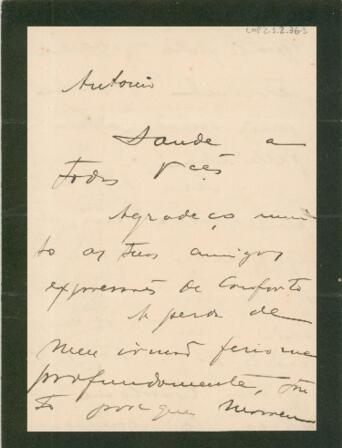 Antonio
Saude a
todos Vcês
Agradeço mui
to as tuas amigas
expressões de conforto
A perda de
meu irmão ferio-me
profundamente, tan
to por que morreu